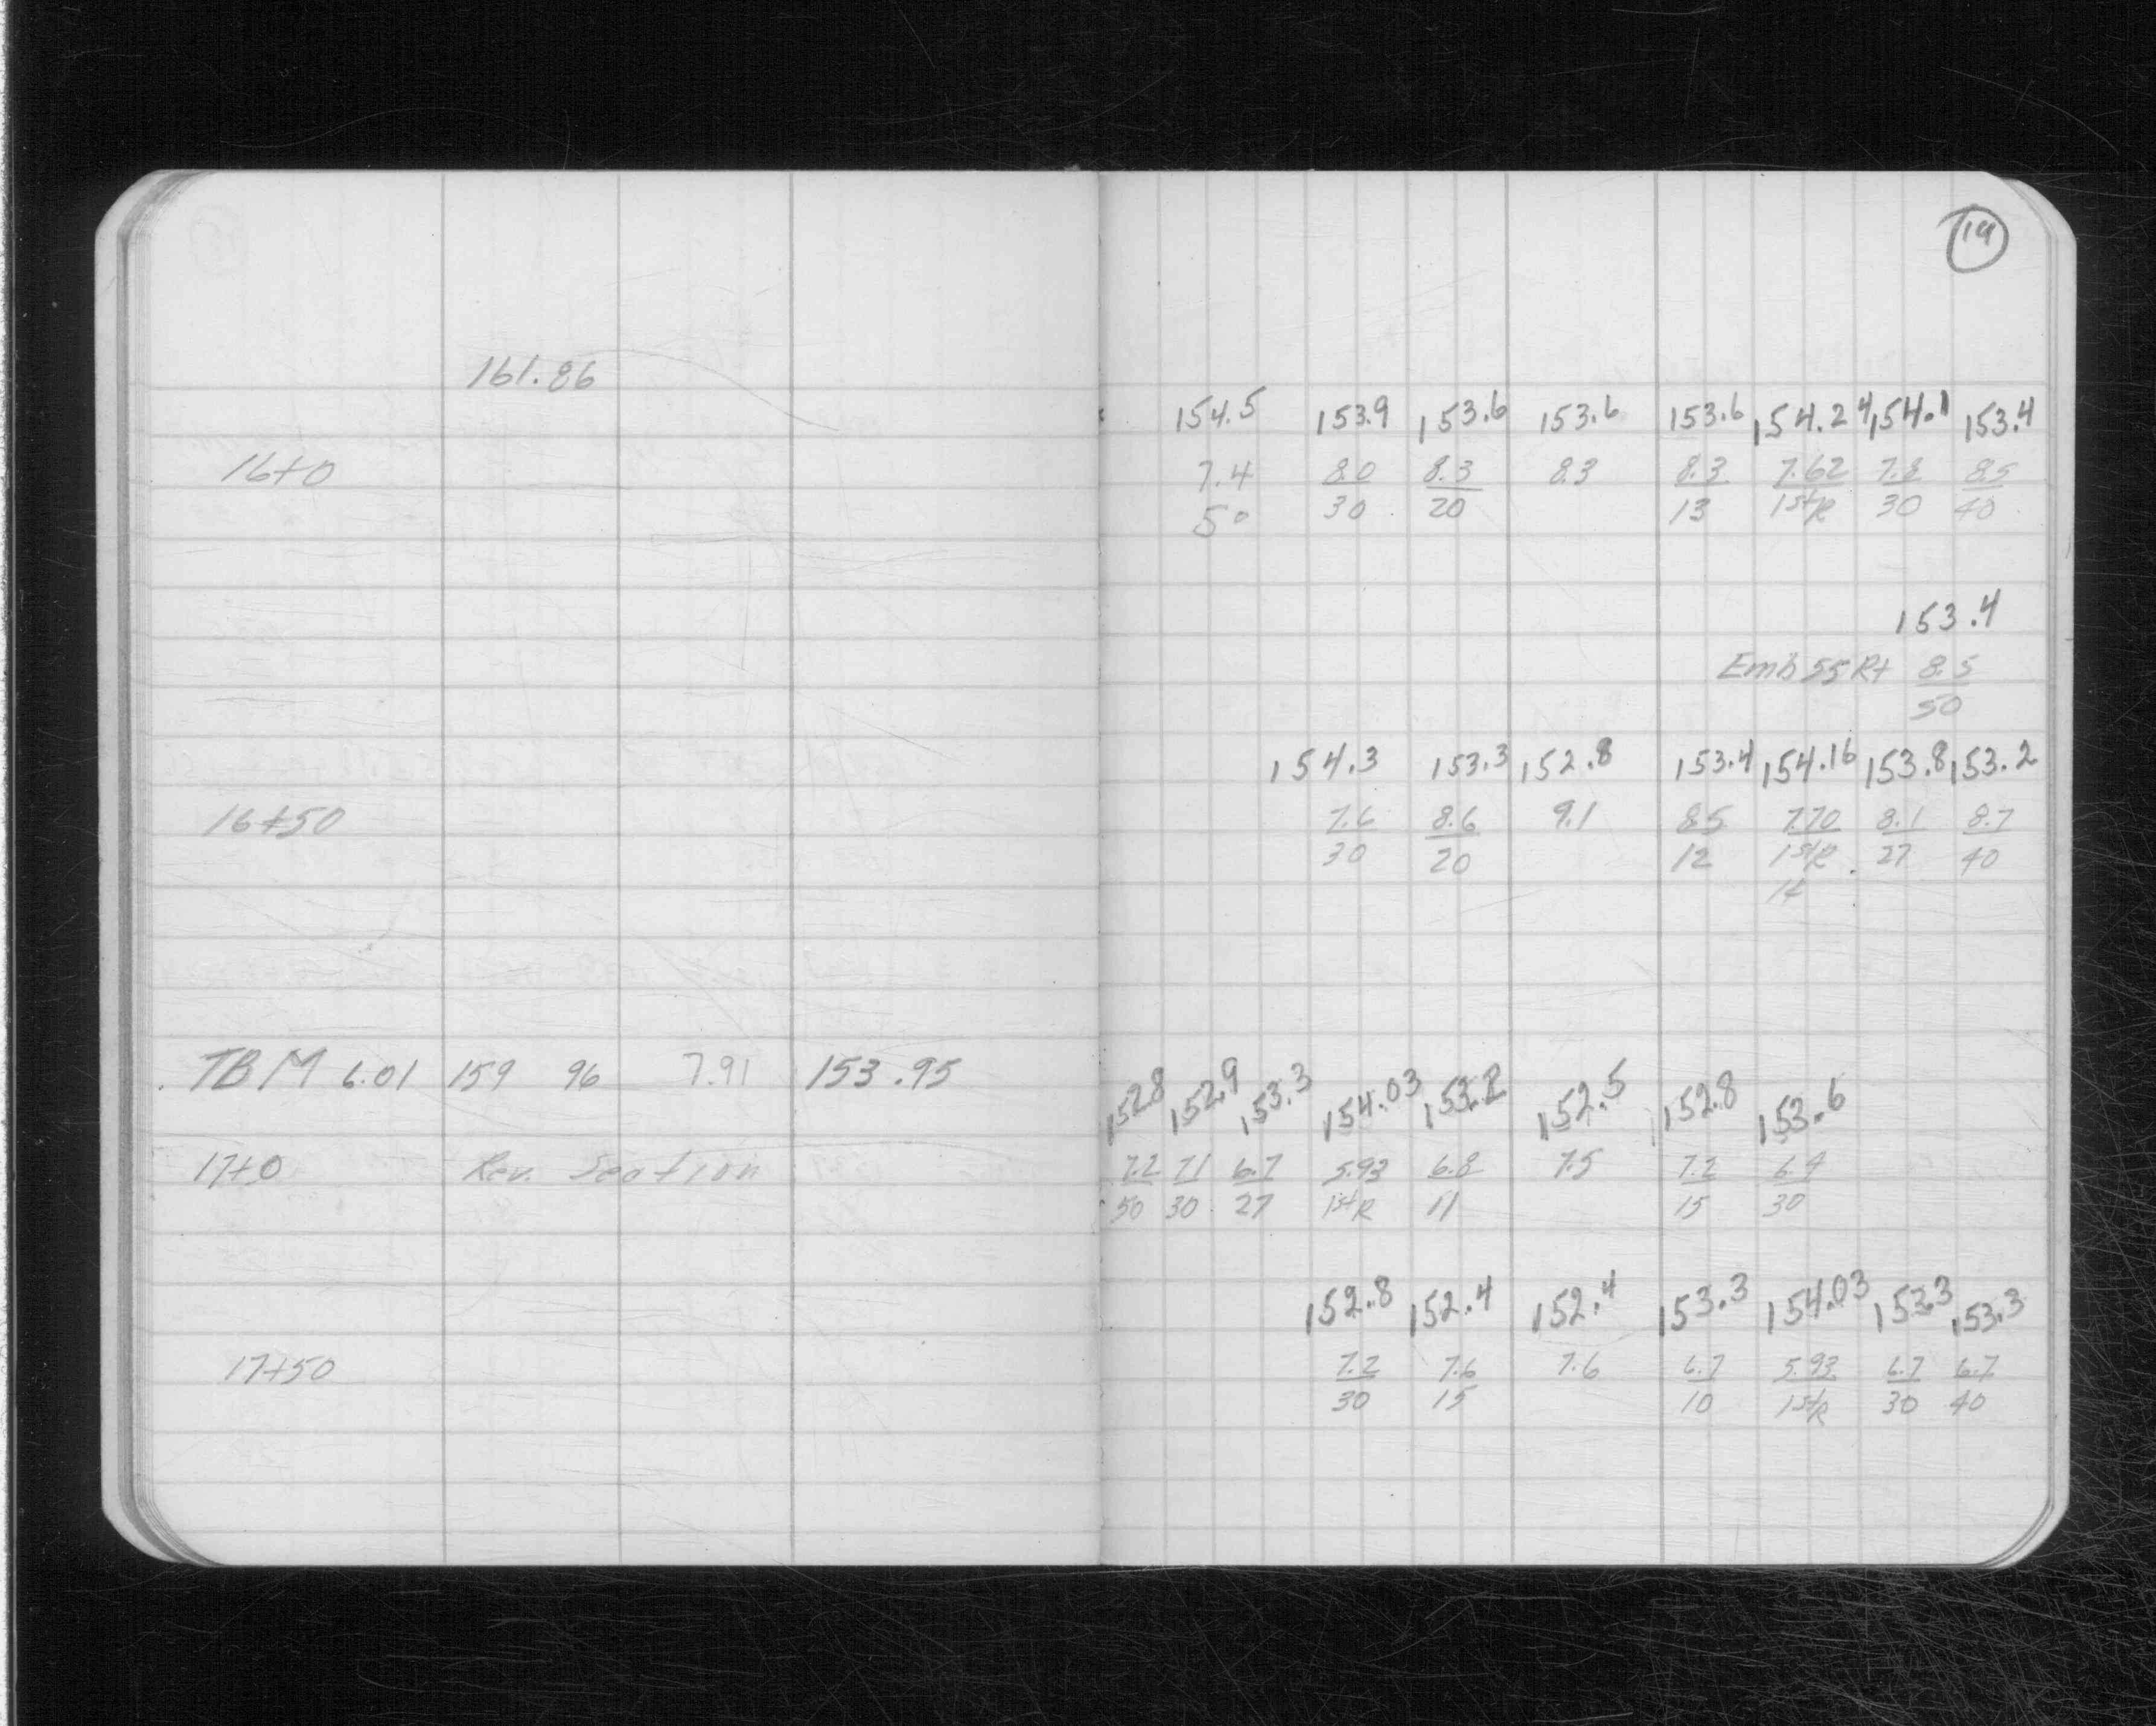 19
161.86
154.5 153.9 153.6 153.6 153.6 154.24 154.1 153.4
16+0 7.4 8.0 8.3 8.3 8.3 7.62 7.8 8.5
50 30 20 13 1stR 30 40
153.4
Emb 55 Rt 8.5
50
154.3 153.3 152.8 153.4 154.16 153.8 153.2
16+50 7.6 8.6 9.1 8.5 7.70 8.1 8.7
30 20 12 1stR 27 40
14
TBM 6.01 159 96 7.91 153.95
152.8 152.9 153.3 154.03 153.2 152.5 152.8 153.6
17+0 Rev. Section 7.2 7.1 6.7 5.93 6.8 7.5 7.2 6.4
50 30 27 1stR 11 15 30
152.8 152.4 152.4 153.3 154.03 153.3 153.3
17+50 7.2 7.6 7.6 6.7 5.93 6.7 6.7
30 15 10 1stR 30 40